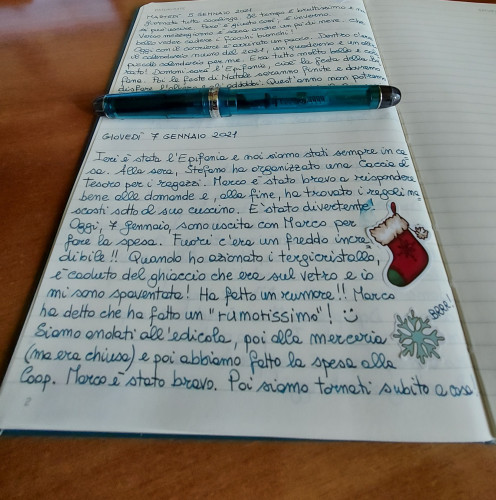 MARTEDÌ 5 GENNAIO 2021
giornata tutto casalinga. Il tempo è bruttissimo e non
si può uscire. Però è giusto così, è inverno.
Verso mezzogiorno è scesa anche un po' di neve. Che
bello veder cadere i fiocchi bianchi!
Oggi con il corriere è arrivato un pacco. Dentro c'era
il calendario nuovo del 2021, un quaderno e un altro
piccolo calendario per me. Era tutto molto bello e cu
rato! Domani sarà l'Epifania, cioè la festa della be
fana. Poi le feste di Natale saranno finite e dovremo
disfare l'albero Quest'anno non potremo
GIOVEDÌ 7 GENNAIO 2021
Ieri è stata l'Epifania e noi siamo stati sempre in ca
sa. Alla sera, Stefano ha organizzato una Caccia al
Tesoro per i ragazzi. Marco è stato bravo a rispondere
bene alle domande e, alla fine, ha trovato i regali na
scosti sotto il suo cuscino. E' stato divertente!
Oggi, 7 gennaio, sono uscita con Marco per
fare la spesa. Fuori c'era un freddo incre
dibile!! Quando ho azionato i tergicristallo,
è caduto del ghiaccio che era sul vetro e io
mi sono spaventata! Ha fatto un rumore!! Marco
ha detto che ha fatto un "rumotissimo"!
BRRR!
Siamo andati all'edicola, poi alla merceria
(ma era chiusa) e poi abbiamo fatto la spesa alla
Coop. Marco è stato bravo. Poi siamo tornati subito a casa
2